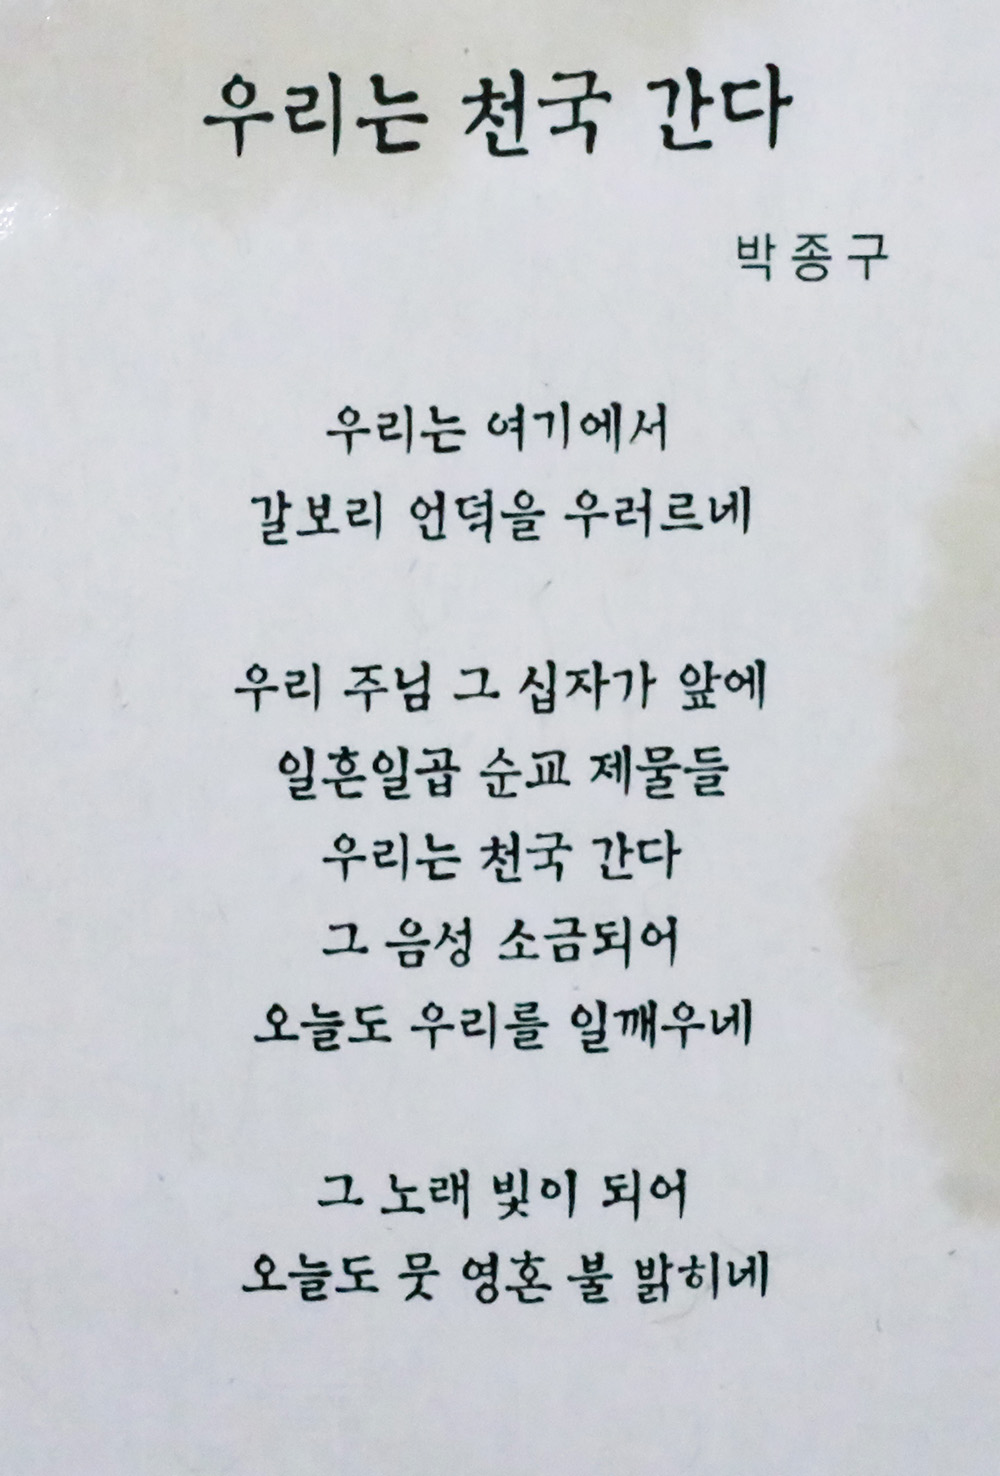 우리는 천국 간다
박종구
우리는 여기에서
갈보리 언덕을 우러르네
우리 주님 그 십자가 앞에
일흔일곱 순교 제물들
우리는 천국 간다
그 음성 소금되어
오늘도 우리를 일깨우네
그 노래 빛이 되어
오늘도 뭇 영혼 불 밝히네